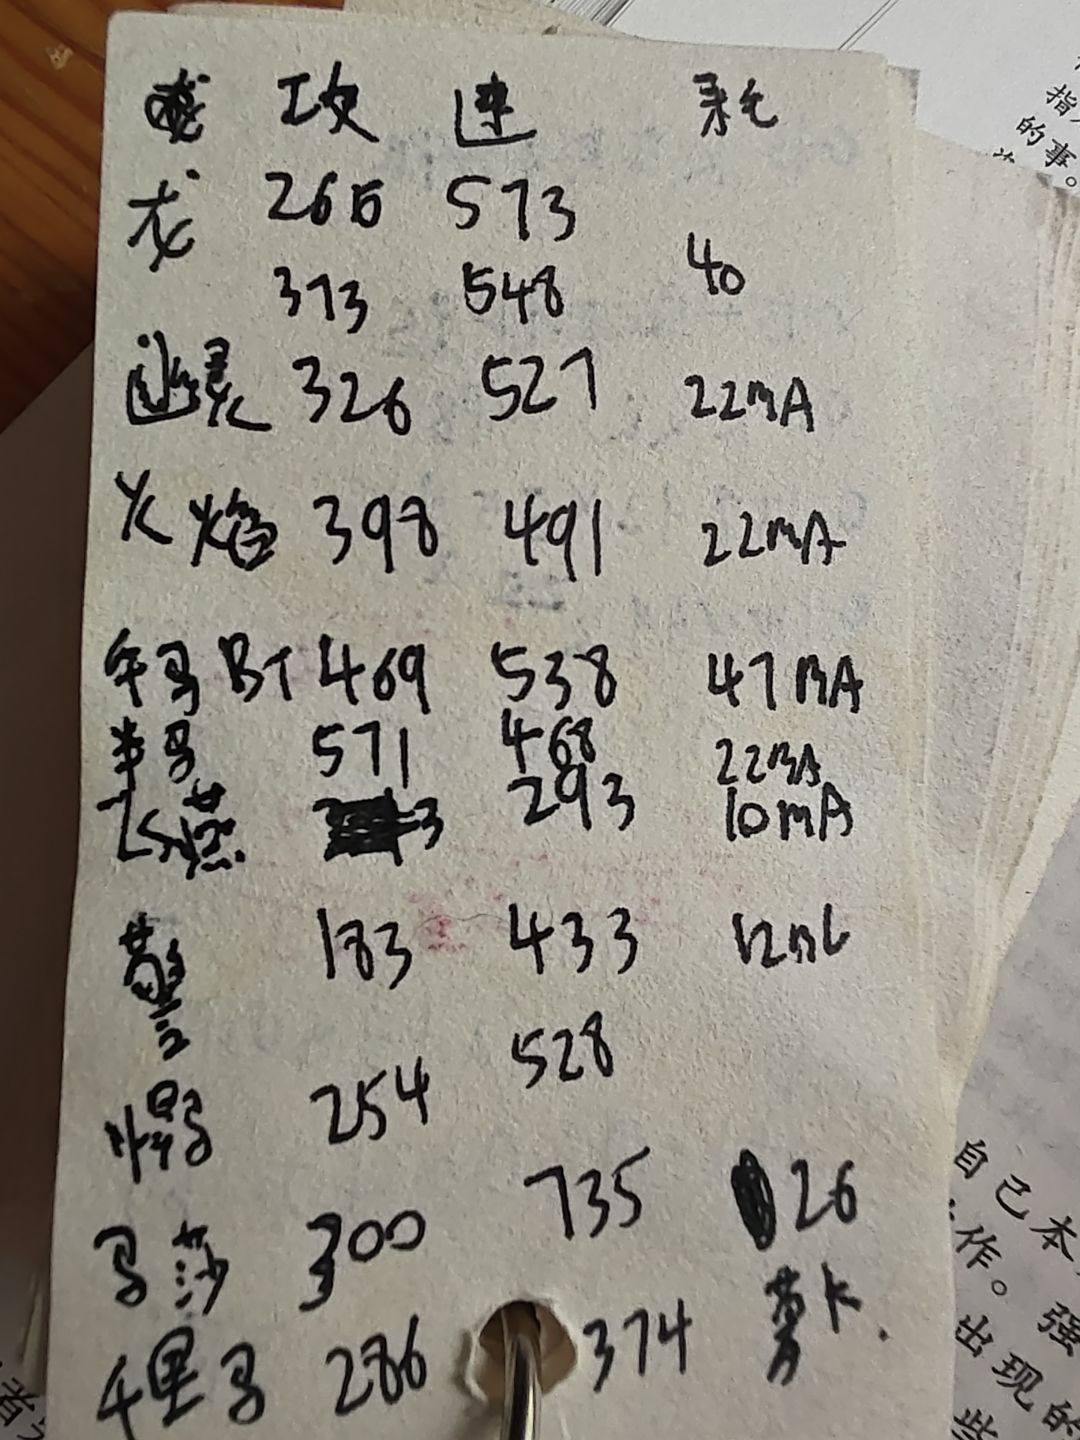 攻 速 耗
龙 265 573
373 548 40
326 527 22mA
火焰 398 491 22mA
年马 BT 469 538 47mA
半马 571 468 22mA
飞燕 3 293 10mA
警 183 433 12mL
254 528
马莎 300 735 26
千里马 286 374 萝卡.
指
的事。
自己本
作。强
出现的
些